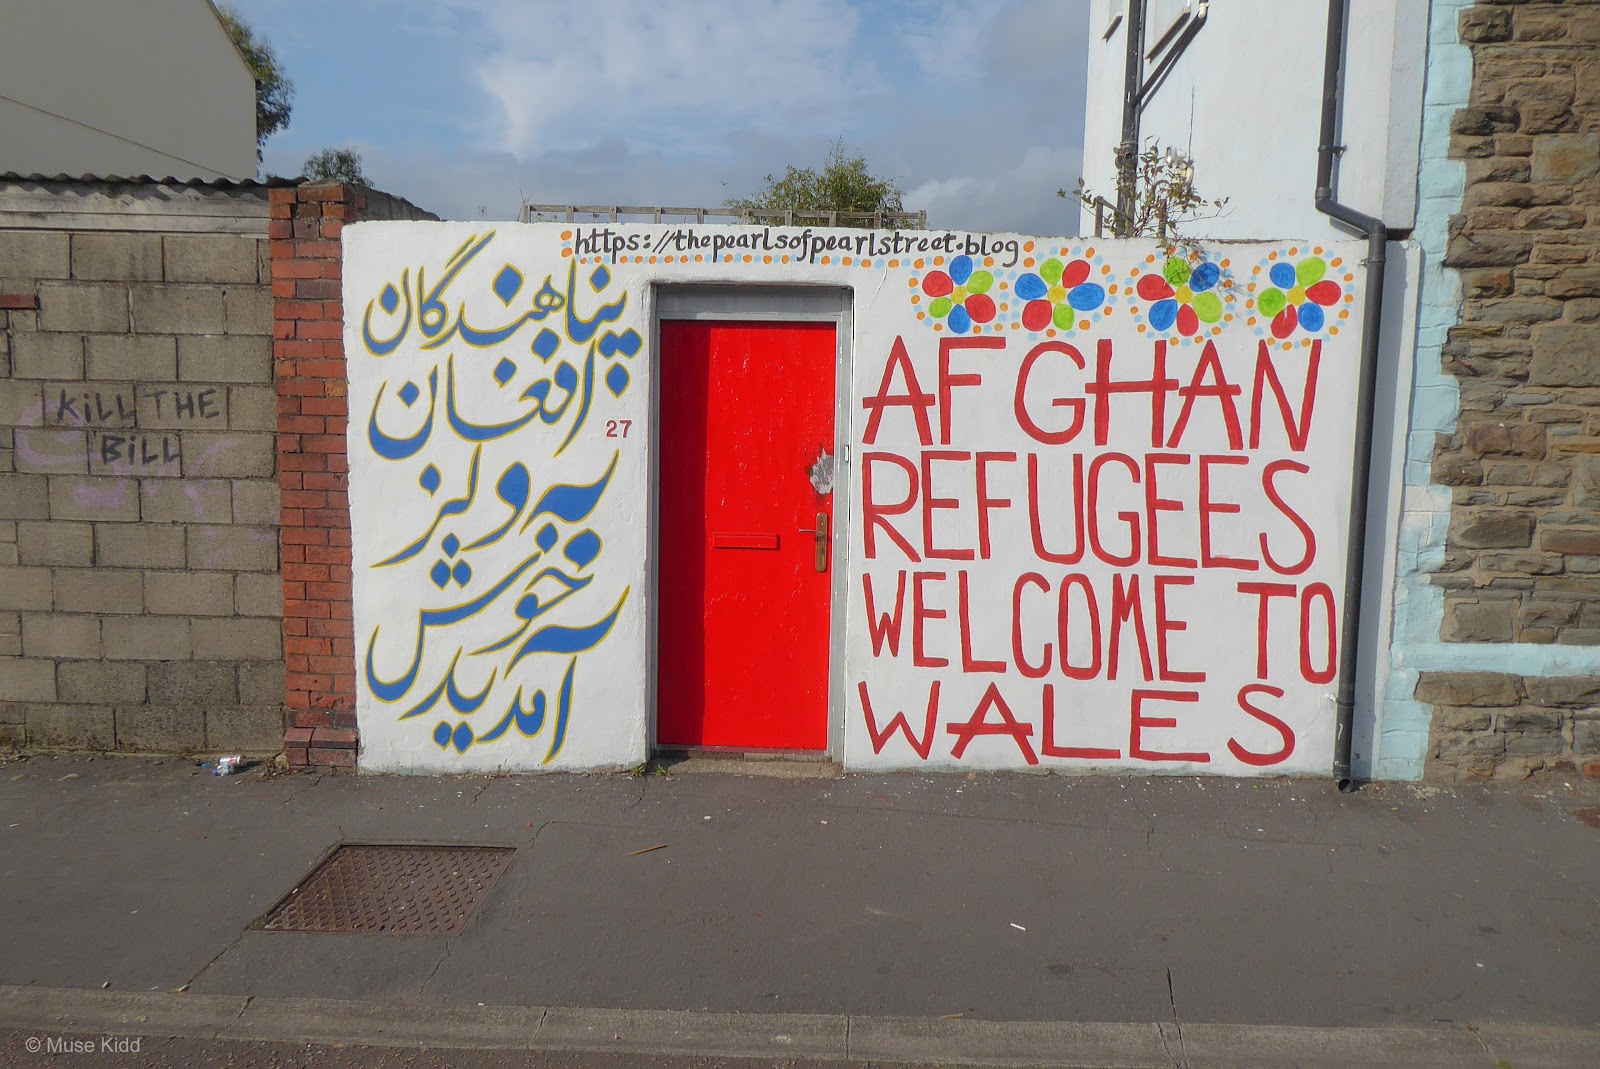 https://thepearlsofpearlstreet.blog
پناهندگان
افغان
به ولز
خوش
آمدید
27
AFGHAN
REFUGEES
WELCOME TO
WALES
KiLL THE
BiLL
© Muse Kidd